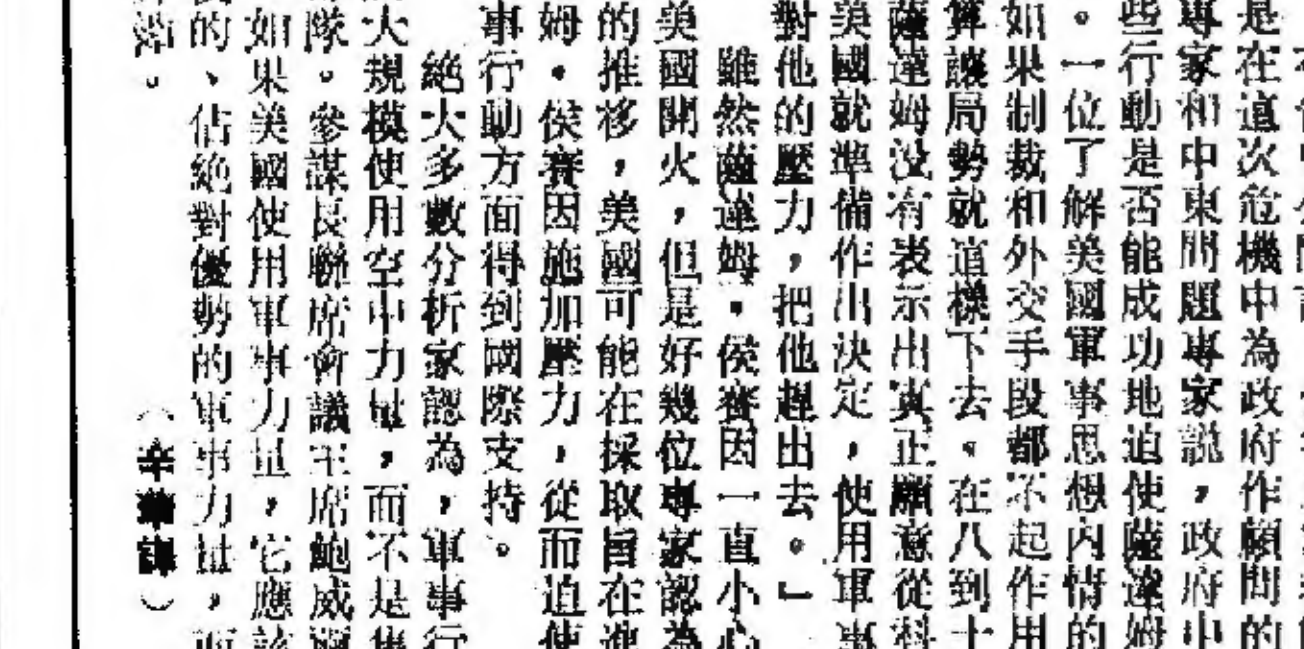 是在這次危機中為政府作顧問的
專家和中東問題專家說，政府中
些行動是否能成功地迫使薩達姆
。一位了解美國軍事思想內情的
如果制裁和外交手段都不起作用
算讓局勢就這樣下去。在八到十
薩達姆沒有表示出真正願意從科
美國就準備作出決定，使用軍事
對他的壓力，把他趕出去。」
雖然薩達姆·侯賽因一直小心
美國開火，但是好幾位專家認為
的推移，美國可能在採取旨在進
姆·侯賽因施加壓力，從而迫使
事行動方面得到國際支持。
絕大多數分析家認為，軍事行
大規模使用空中力量，而不是集
隊。參謀長聯席會議主席鮑威爾
如果美國使用軍事力量，它應該
的、佔絕對優勢的軍事力量，而
始。（辛華譯）